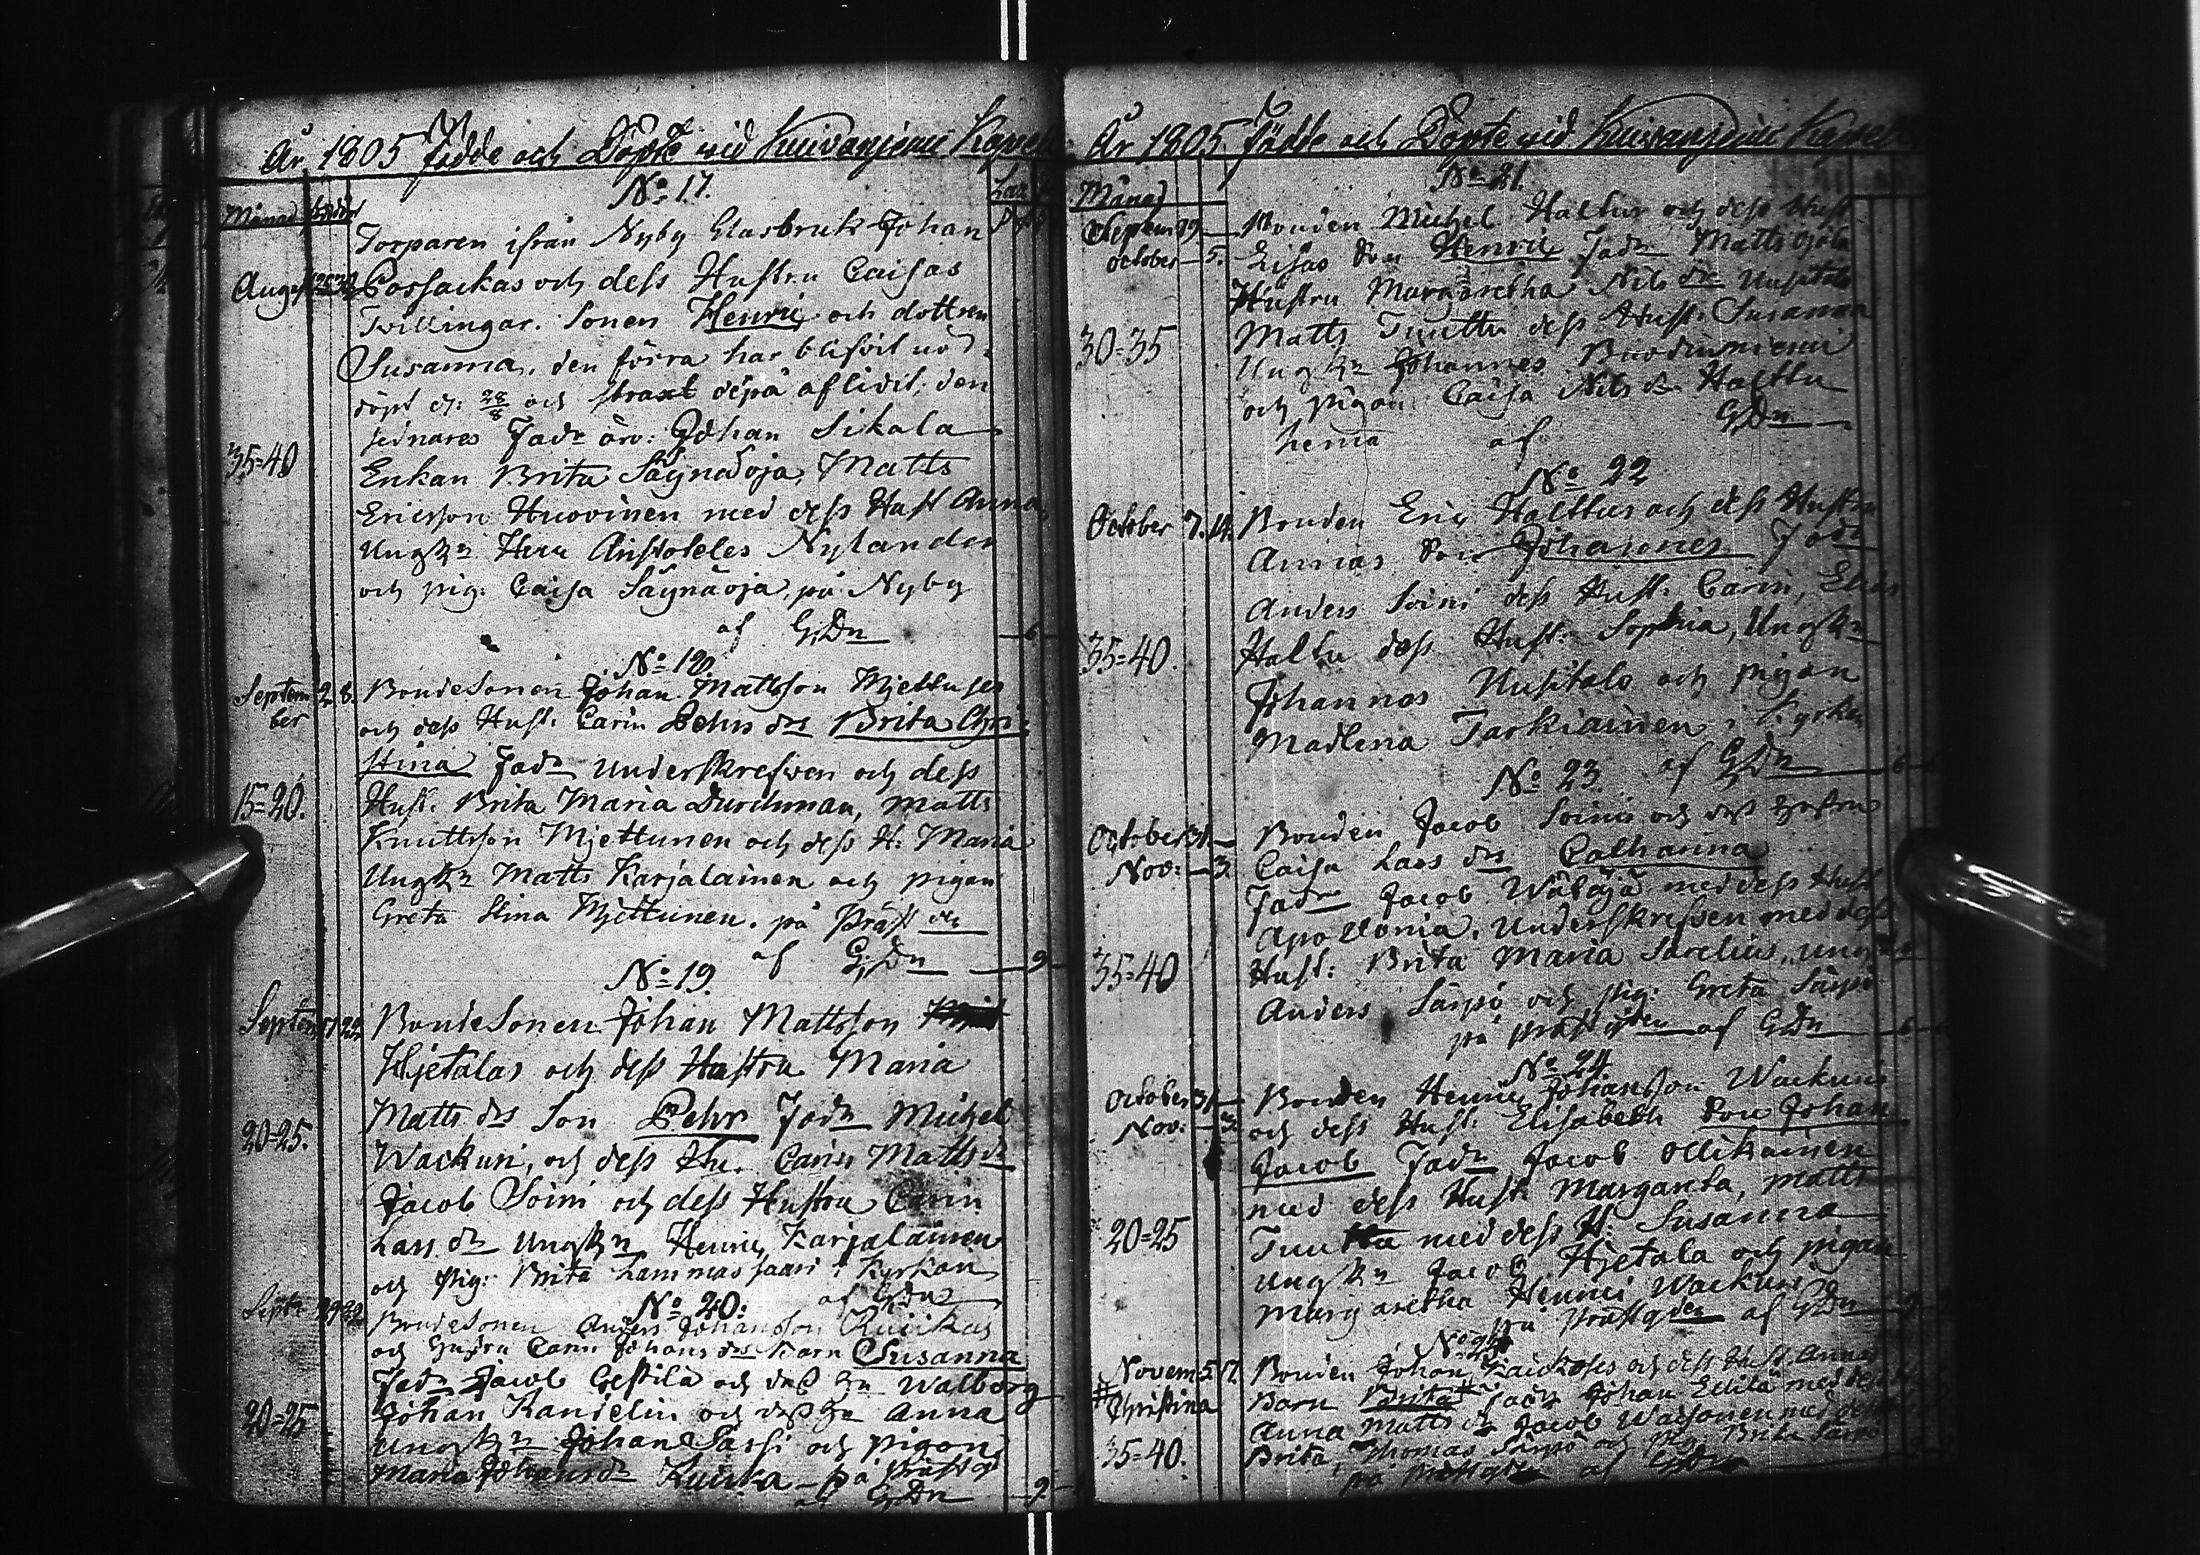 År 1805 födde och Döpte vid Kuivaniemi Kapell
No 17.
Månad födde
Torparen ifrån Nyby Glasbruk Johan
August 28 Possackas och dess Hustru Caisas
Tvillingar. Sonen Henric och dottren
Susanna, den förra har blifvit nöd-
döpt d: 28/8 och straxt depå aflidit; den
sednares Fadr äro: Johan Sikala
35=40
Enkan Brita Säynäoja, Matts
Ericsson Huovinen med dess Hust Anna,
Ungkn Herr Aristoteles Nylander
och pig: Caisa Säynäoja, på Nyby
af GDn 6
No 18
September 2. 8. Bondesonen Johan Mattsson Mjettuses
och dess Hust: Carin Pehrs dr Brita Chri-
stina Fadr Underskrefven och dess
15=20. Hust: Brita Maria Durchman, Matts
Knuttsson Mjettunen och dess H. Maria
Ungkn Matts Karjalainen och pigan
Greta Stina Mjettunen. på Präst
af GDn 9
No 19.
Septem 22 Bondesonen Johan Mattsson
Hjetalas och dess Hustru Maria
Matts dr Son Pehr Fadr Michel
20=25. Wackuri, och dess Hu. Carin Matts dr
Jacob Soini och dess Hustru Carin
Lars dr Ungkn Henric Karjalainen
och pig: Brita Lammassaari i Kyrkan
af GDn
No 20.
Septr Bondesonen Anders Johansson Kuivikas
och Hustru Carin Johans dr barn Susanna
Fadr Jacob Cestilä och dess Hu Walborg
20=25 Johan Kandelin och dess Hu Anna
Ungkn Johan Sassi och pigan
Maria Johans dr Kuivka på Prästg
af GDn 9.
År 1805. födde och Döpte vid Kuivaniemi Kapell
No 21.
Månad
Septem 29 Bonden Michel Halttus och dess Hust
October 5. Lisas Son Henric Fadr Matts
Hustru Margaretha Nils dr Uusitalo
30=35 Matts Tuuttu dess Hust: Susanna
Ungkn Johannes
och pigan Caisa Nils dr Halttu
hema af GDn
No 22
October 7. 14. Bonden Eric Halttus och dess Hustru
Annas Son Johannes Fadr
Anders Soini dess Hust: Carin, Elias
35=40. Haltu dess Hust: Sophia, Ungkn
Johannes Uusitalo och pigan
Madlena Tarkiainen i Kyrkan
af GDn 6
No 23.
October 31. Bonden Jacob Soinis och dess Hustru
Nov: 3. Caisa Lars dr Catharina
Fadr Jacob Wäläjä med dess Hust
Apollonia. Underskrefven med dess
35=40 Hust: Brita Maria Sarelius, Ungkn
Anders Särpö och pig: Greta Särpö
på prästgden af GDn 6
No 24
October 31 Bonden Henric Johansson Wackuris
Nov: 3. och dess Hust: Elisabeth Son Johan
Jacob Fadr Jacob Ollikainen
med dess Hust: Margareta, Matts
20=25 Tuuttu med dess H. Susanna
Ungkn Jacob Hjetala och pigan
Margaretha Henric Wackuri
på prästgden af GDn 9
No 25
Novem 5. 17. Bonden Johan och dess Hust Annas
# Christina Barn Brita # Fadr Johan Ellilä med dess
Anna Matts dr Jacob Waisonen med dess
35=40. Brita, Thomas Särpö och pig: Brita Särpö
på Prästgden af GDn